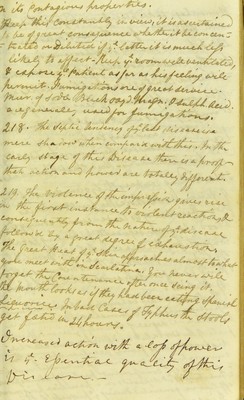 in its Contagious properties.
Keep this constantly in view, it is ascertained
to be of great consequence whether it be concen-
trated or diluted, if ye latter it is much less
likely to affect. Keep ye room well ventilated,
& expose ye patient as far as his feelings will
permit. Fumigations are of great service.
Mur. of Soda Black oxyd. Mang. & Sulph. Acid.
are generally used for fumigations.
218. The septic tendency of ye last diseases
mere shadow when compared with this. In the
early stage of this Disease there is a proof
that action and power are totally different.
219. The violence of the impression gives rise
in the first instance to violent reaction &
consequently from the nature of ye disease
followed by a great degree of exhaustion.
The great heat of ye skin approaches almost to what
you meet with in Scarlatina. You never will
forget the Countenance after once seeing it.
the mouth looks as if they had been eating Spanish
Liquorice. In bad cases of Typhus the stools
get fetid in 24 hours.
Increased action with a loss of power
is ye Essential quality of this
Disease. —